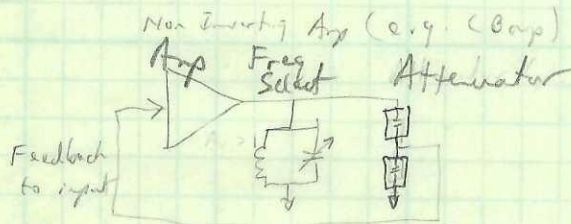 Non Inverting Amp (e.g. CB amp)
Amp
Freq
Select
Attenuator
Feedback
to input